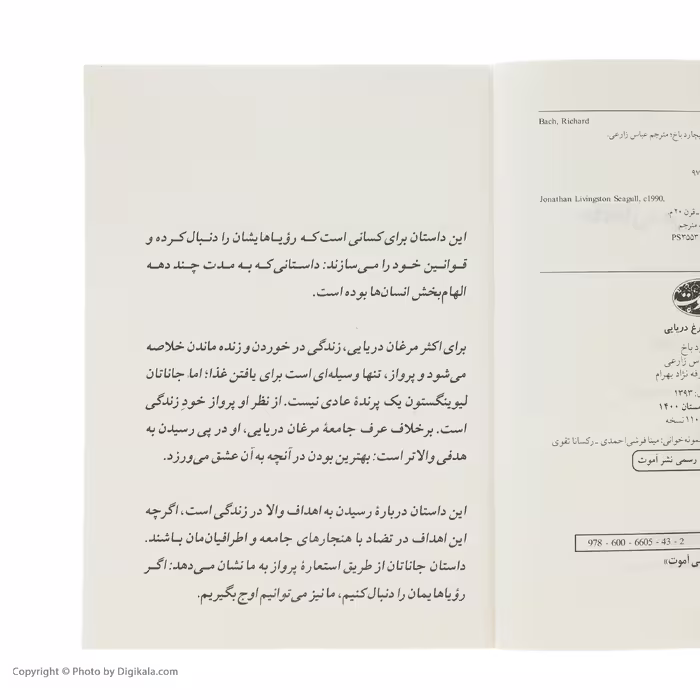 این داستان برای کسانی است که رؤیاهایشان را دنبال کرده و
قوانین خود را می‌سازند: داستانی که به مدت چند دهه
الهام‌بخش انسان‌ها بوده است.
برای اکثر مرغان دریایی، زندگی در خوردن و زنده ماندن خلاصه
می‌شود و پرواز، تنها وسیله‌ای است برای یافتن غذا؛ اما جاناتان
لیوینگستون یک پرندهٔ عادی نیست. از نظر او پرواز خودِ زندگی
است. برخلاف عرف جامعهٔ مرغان دریایی، او در پی رسیدن به
هدفی والاتر است: بهترین بودن در آنچه به آن عشق می‌ورزد.
این داستان دربارهٔ رسیدن به اهداف والا در زندگی است، اگرچه
این اهداف در تضاد با هنجارهای جامعه و اطرافیان‌مان باشند.
داستان جاناتان از طریق استعارهٔ پرواز به ما نشان می‌دهد: اگر
رؤیاهایمان را دنبال کنیم، ما نیز می‌توانیم اوج بگیریم.
Bach, Richard
باخ؛ مترجم عباس زارعی.
۹۷
Jonathan Livingston Seagull, c1990.
قرن ۲۰م.
مترجم
PS۳۵۵۳
دریایی
باخ
زارعی
نژاد بهرام
۱۳۹۳
۱۴۰۰
نسخه
نمونه‌خوانی: مینا فرشی‌احمدی ـ رکسانا تقوی
رسمی نشر آموت
978 - 600 - 6605 - 43 - 2
آموت»
Copyright © Photo by Digikala.com